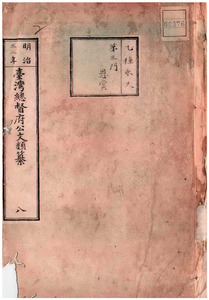 乙種永久
第三門
恩賞
明治三二年
臺灣總督府公文類纂
八